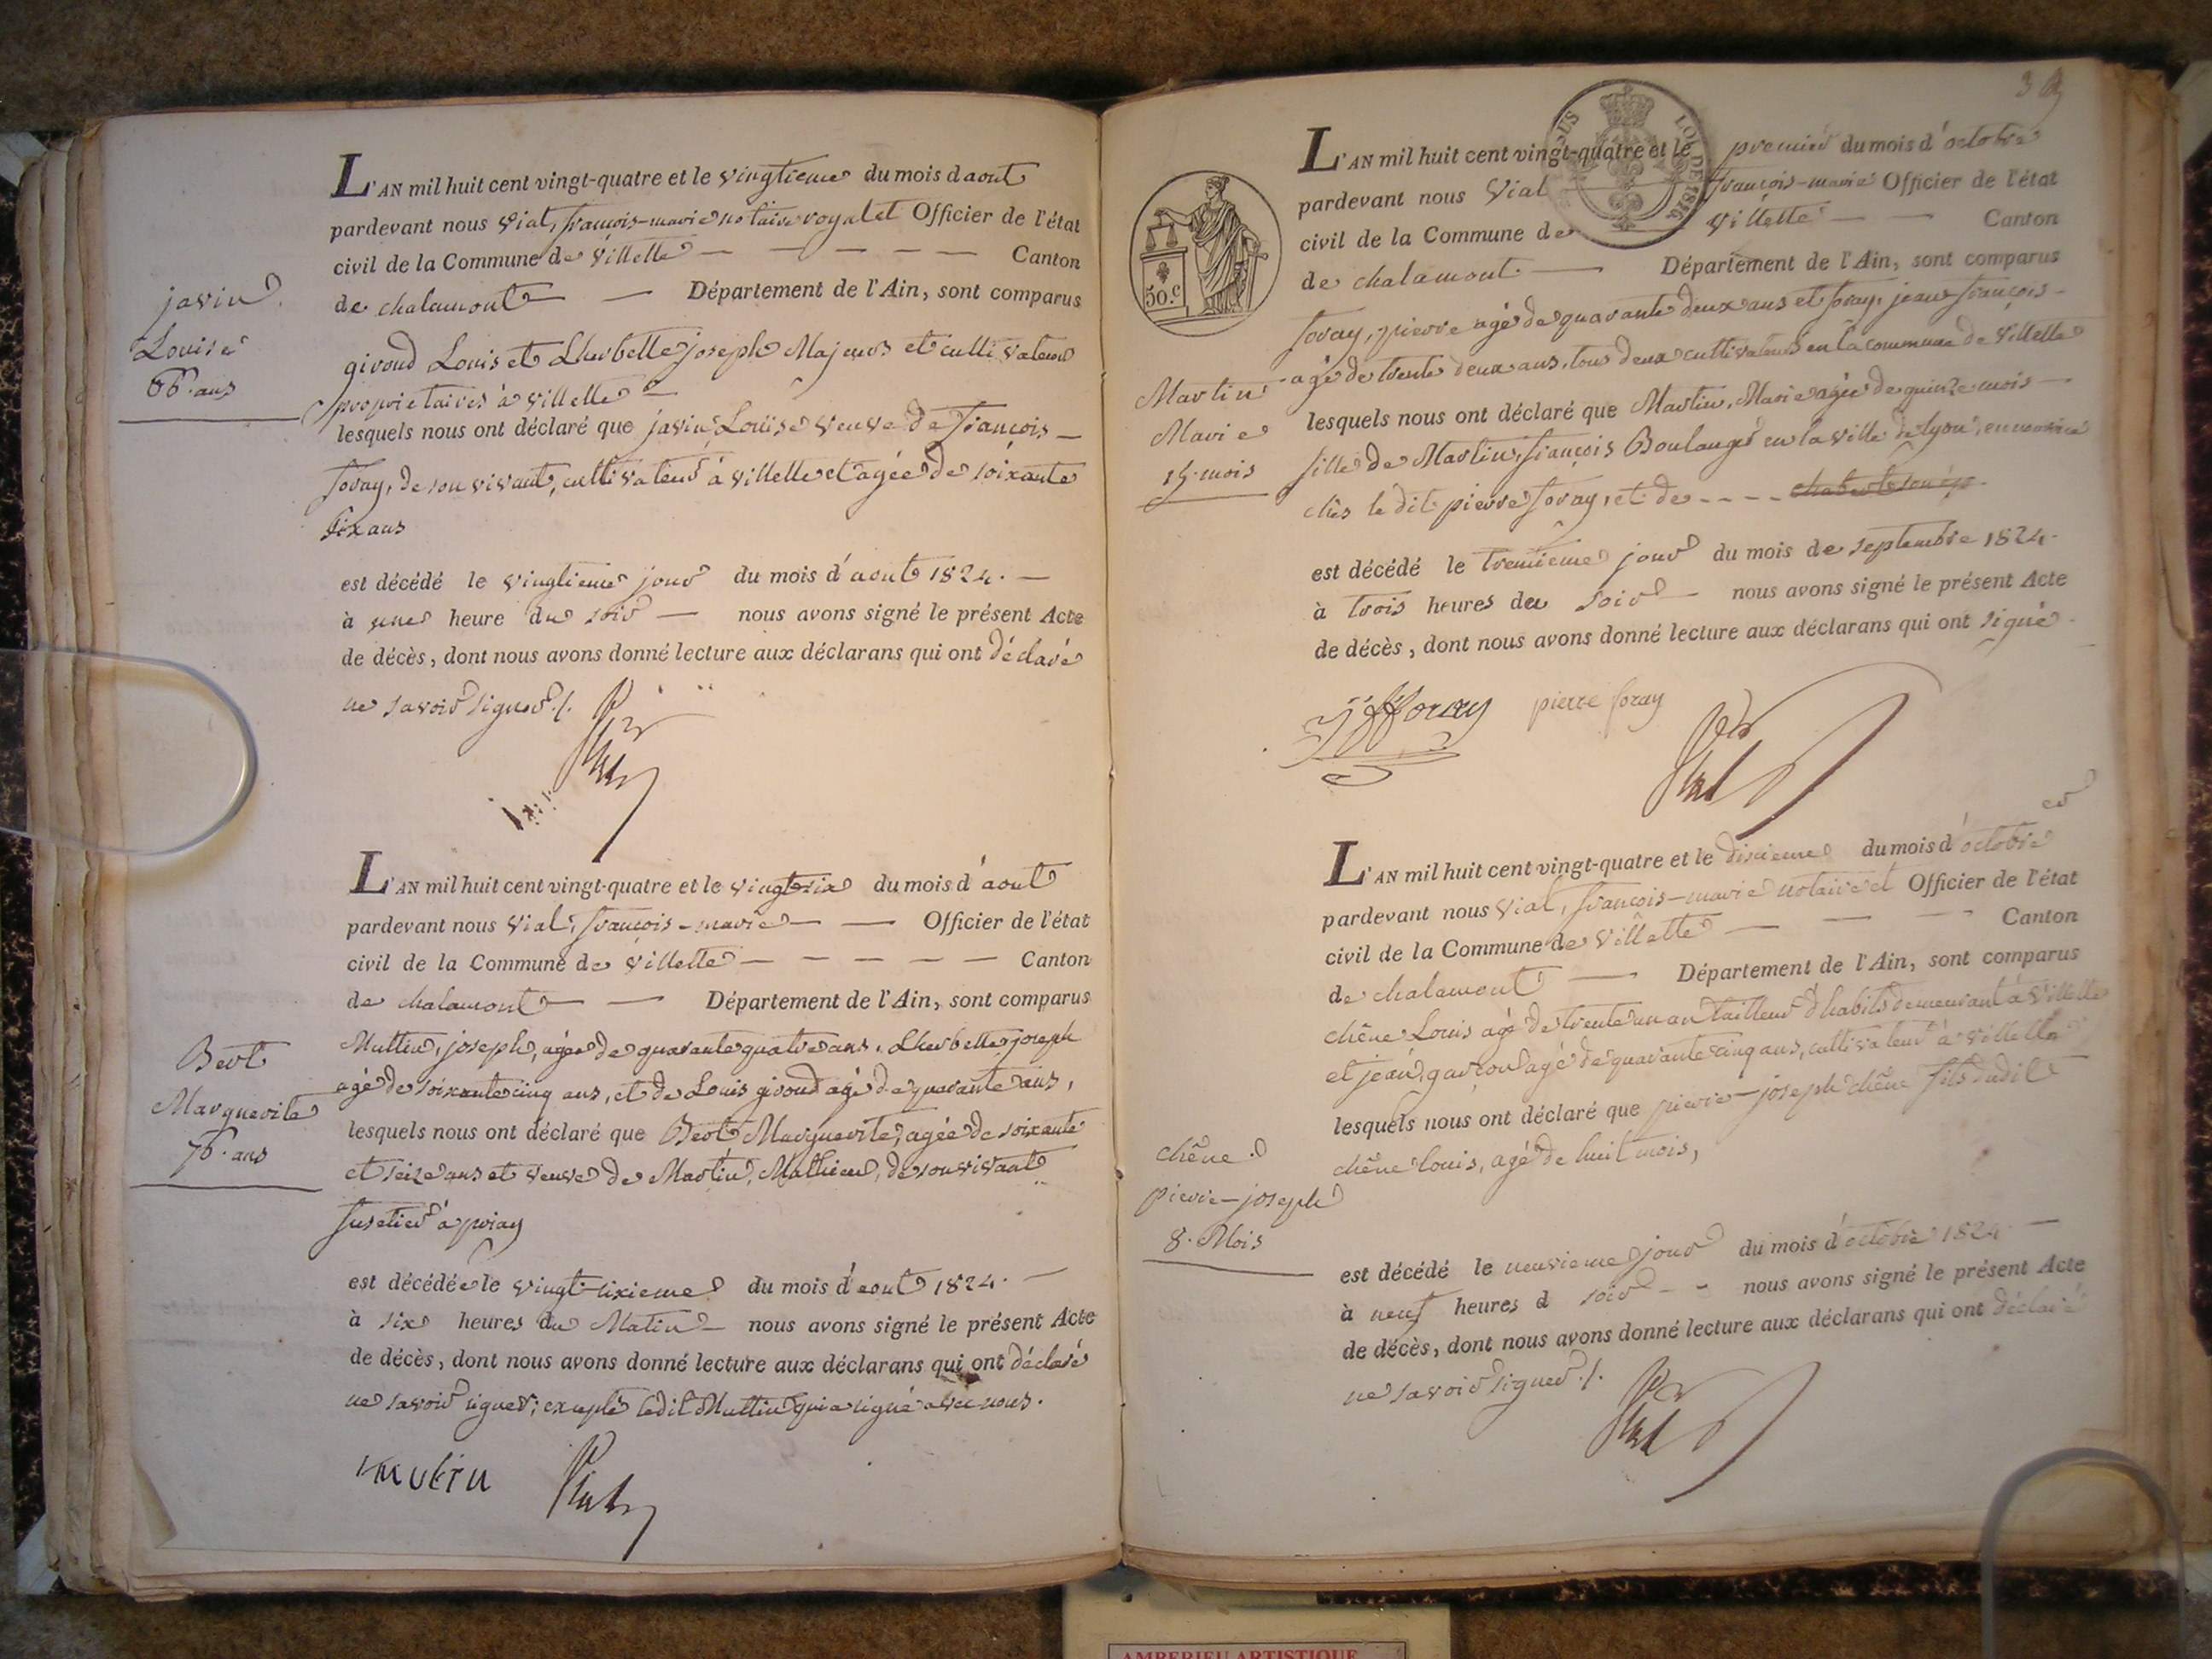 javin
Louise
66. ans
L'AN mil huit cent vingt-quatre et le vingtieme du mois d aout
pardevant nous Vial, françois-marie notaire royal et Officier de l'état
civil de la Commune de Villette — — — — — Canton
de chalamont — — Département de l'Ain, sont comparus
giroud Louis et Lherbette joseph Majeurs et cultivateurs
proprietaires à villette —
lesquels nous ont déclaré que javin Louise veuve de françois —
foray, de son vivant, cultivateur à villette et agée de soixante
six ans
est décédé le vingtieme jour du mois d'aout 1824. —
à une heure du soir — nous avons signé le présent Acte
de décès, dont nous avons donné lecture aux déclarans qui ont déclaré
ne savoir signer ./.
Vial
Bert
Marguerite
76. ans
L'AN mil huit cent vingt-quatre et le vingt six du mois d'aout
pardevant nous Vial, françois-marie — — Officier de l'état
civil de la Commune de Villette — — — — — Canton
de chalamont — — Département de l'Ain, sont comparus
Muttin, joseph, agée de quarante quatre ans, Lherbette joseph
agé de soixante cinq ans, et de Louis giroud agé de quarante ans,
lesquels nous ont déclaré que Bert Marguerite, agée de soixante
et seize ans et veuve de Martin, Mathieu, de son vivant
fusetier à priay
est décédée le vingt-sixieme du mois d'aout 1824. —
à six heures du Matin — nous avons signé le présent Acte
de décès, dont nous avons donné lecture aux déclarans qui ont déclaré
ne savoir signer; excepté ledit Muttin qui a signé avec nous.
mutin Vial
LOI DE 1816
50.c
Martin
Marie
15. mois
L'AN mil huit cent vingt-quatre et le premier du mois d'octobre
pardevant nous Vial françois-marie Officier de l'état
civil de la Commune de Villette — — Canton
de chalamont — Département de l'Ain, sont comparus
foray, pierre agé de quarante deux ans et foray, jean françois —
agé de trente deux ans, tous deux cultivateurs en la commune de Villette
lesquels nous ont déclaré que Martin, Marie agée de quinze mois —
fille de Martin, françois Boulanger en la ville de lyon, en nourice
chès le dit pierre foray, et de - - - -
est décédé le trentieme jour du mois de septembre 1824.
à trois heures du soir — nous avons signé le présent Acte
de décès, dont nous avons donné lecture aux déclarans qui ont signé.
JF foray pierre foray Vial
chêne
pierre-joseph
8. Mois
L'AN mil huit cent vingt-quatre et le dixieme du mois d'octobre
pardevant nous Vial, françois-marie notaire et Officier de l'état
civil de la Commune de Villette — — — Canton
de chalamont — Département de l'Ain, sont comparus
chêne Louis agé de trente un an tailleur d'habits demeurant à Villette
et jean, garçon agé de quarante cinq ans, cultivateur à villette
lesquels nous ont déclaré que pierre-joseph chêne fils dudit
chêne louis, agé de huit mois,
est décédé le neuvieme jour du mois d'octobre 1824 —
à neuf heures d soir - - nous avons signé le présent Acte
de décès, dont nous avons donné lecture aux déclarans qui ont déclaré
ne savoir signer ./.
Vial
AMBERIEU ARTISTIQUE